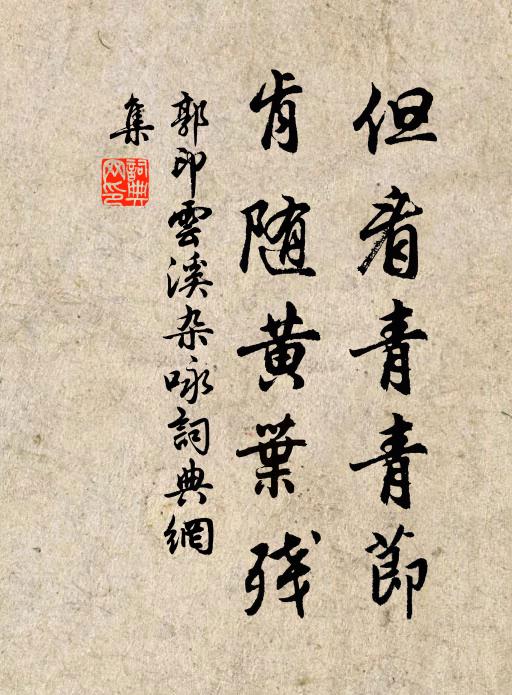 但看青青節
肯随黄葉残
郭印雲溪杂咏詞典網
集
詞典網印